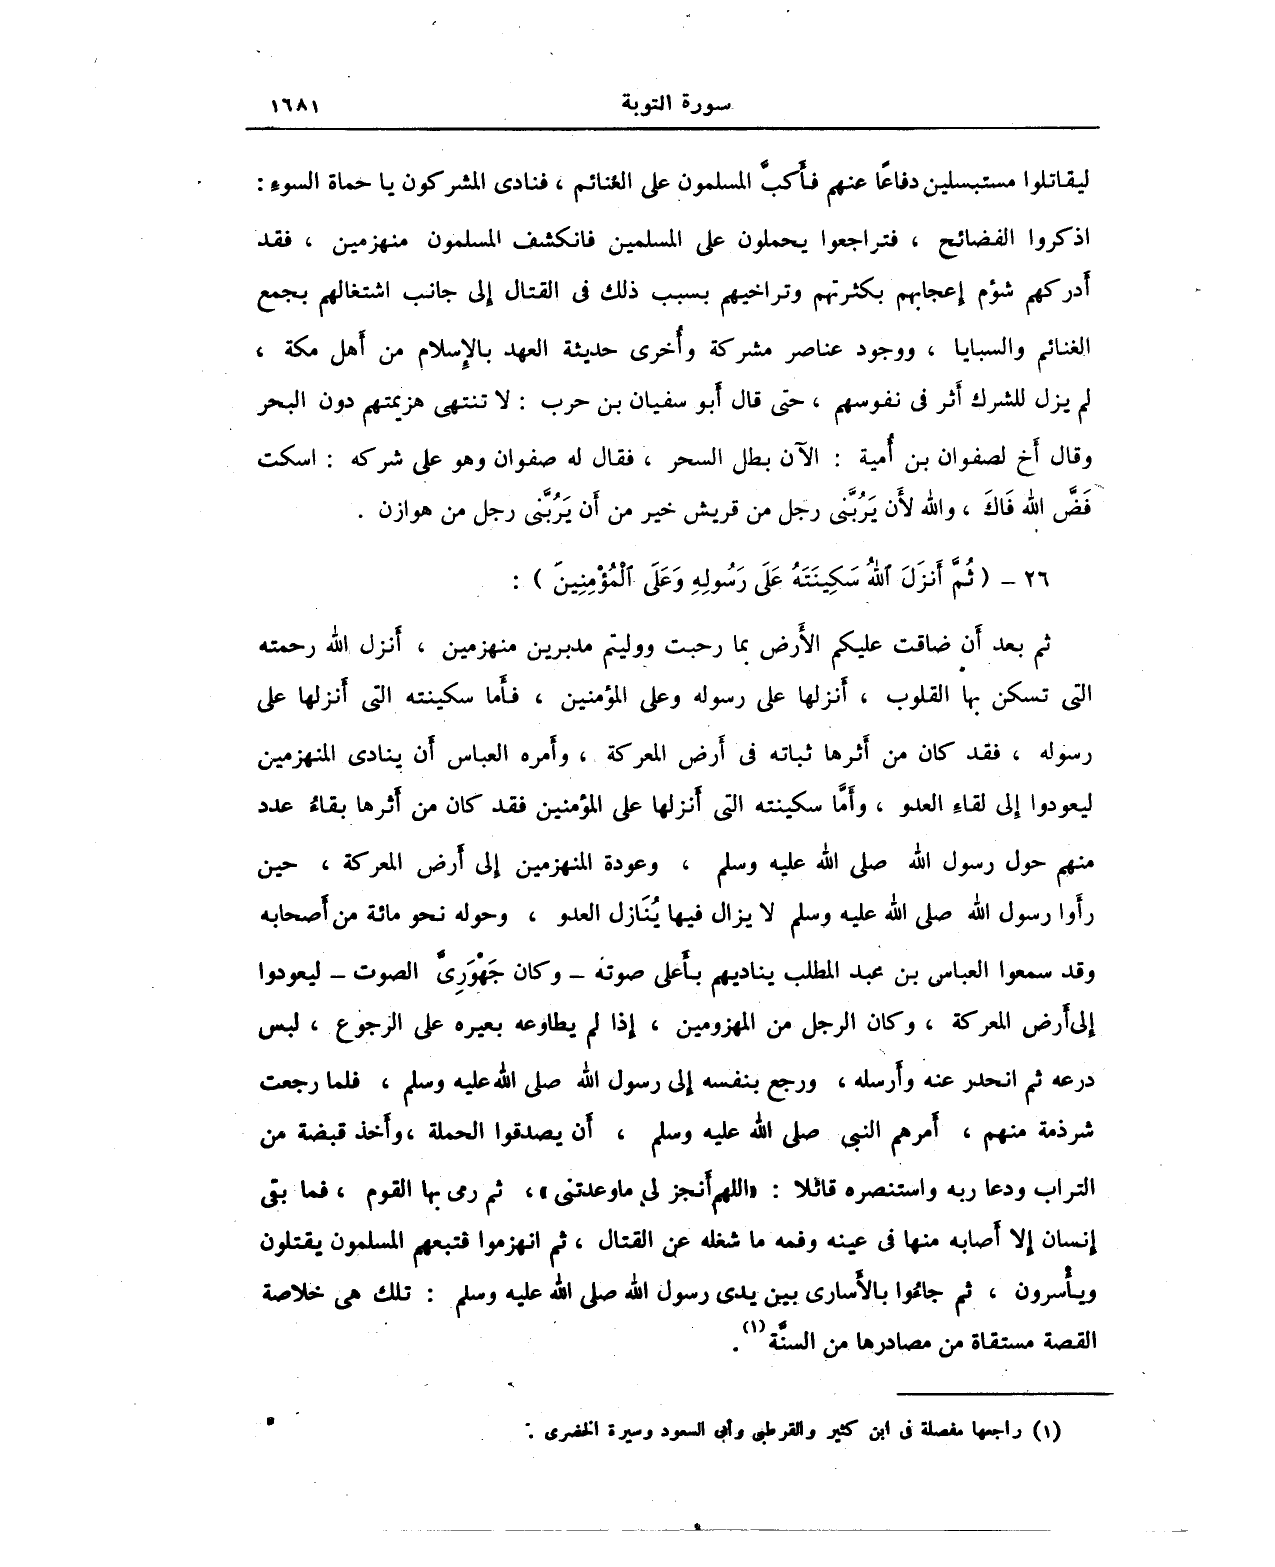 سورة التوبة ١٦٨١
ليقاتلوا مستبسلين دفاعًا عنهم فأَكبَّ المسلمون على الغنائم ، فنادى المشركون يا حماة السوء :
اذكروا الفضائح ، فتراجعوا يحملون على المسلمين فانكشف المسلمون منهزمين ، فقد
أَدركهم شؤم إعجابهم بكثرتهم وتراخيهم بسبب ذلك فى القتال إلى جانب اشتغالهم بجمع
الغنائم والسبايا ، ووجود عناصر مشركة وأُخرى حديثة العهد بالإِسلام من أَهل مكة ،
لم يزل للشرك أَثر فى نفوسهم ، حتى قال أَبو سفيان بن حرب : لا تنتهى هزيمتهم دون البحر
وقال أَخ لصفوان بن أُمية : الآن بطل السحر ، فقال له صفوان وهو على شركه : اسكت
فَضَّ الله فَاكَ ، والله لأَن يَرُبَّنى رجل من قريش خير من أَن يَرُبَّنى رجل من هوازن .
٢٦ – ( ثُمَّ أَنزَلَ ٱللهُ سَكِينَتَهُ عَلَى رَسُولِهِ وَعَلَى ٱلْمُؤْمِنِينَ ) :
ثم بعد أَن ضاقت عليكم الأَرض بما رحبت ووليتم مدبرين منهزمين ، أَنزل الله رحمته
التى تسكن بها القلوب ، أَنزلها على رسوله وعلى المؤمنين ، فأَما سكينته التى أَنزلها على
رسوله ، فقد كان من أَثرها ثباته فى أَرض المعركة ، وأَمره العباس أَن ينادى المنهزمين
ليعودوا إلى لقاءِ العدو ، وأَمَّا سكينته التى أَنزلها على المؤمنين فقد كان من أَثرها بقاءُ عدد
منهم حول رسول الله صلى الله عليه وسلم ، وعودة المنهزمين إلى أَرض المعركة ، حين
رأَوا رسول الله صلى الله عليه وسلم لا يزال فيها يُنَازل العدو ، وحوله نحو مائة من أَصحابه
وقد سمعوا العباس بن عبد المطلب يناديهم بأَعلى صوته – وكان جَهْوَرِىَّ الصوت – ليعودوا
إلى أَرض المعركة ، وكان الرجل من المهزومين ، إذا لم يطاوعه بعيره على الرجوع ، لبس
درعه ثم انحدر عنه وأَرسله ، ورجع بنفسه إلى رسول الله صلى الله عليه وسلم ، فلما رجعت
شرذمة منهم ، أَمرهم النبى صلى الله عليه وسلم ، أَن يصدقوا الحملة ، وأَخذ قبضة من
التراب ودعا ربه واستنصره قائلا : «اللهم أَنجز لى ماوعدتنى» ، ثم رمى بها القوم ، فما بقى
إنسان إلا أَصابه منها فى عينه وفمه ما شغله عن القتال ، ثم انهزموا فتبعهم المسلمون يقتلون
ويأْسرون ، ثم جاءُوا بالأَسارى بين يدى رسول الله صلى الله عليه وسلم : تلك هى خلاصة
القصة مستقاة من مصادرها من السنَّة (١) .
(١) راجعها مفصلة فى ابن كثير والقرطبى وأبى السعود وسيرة الخضرى .